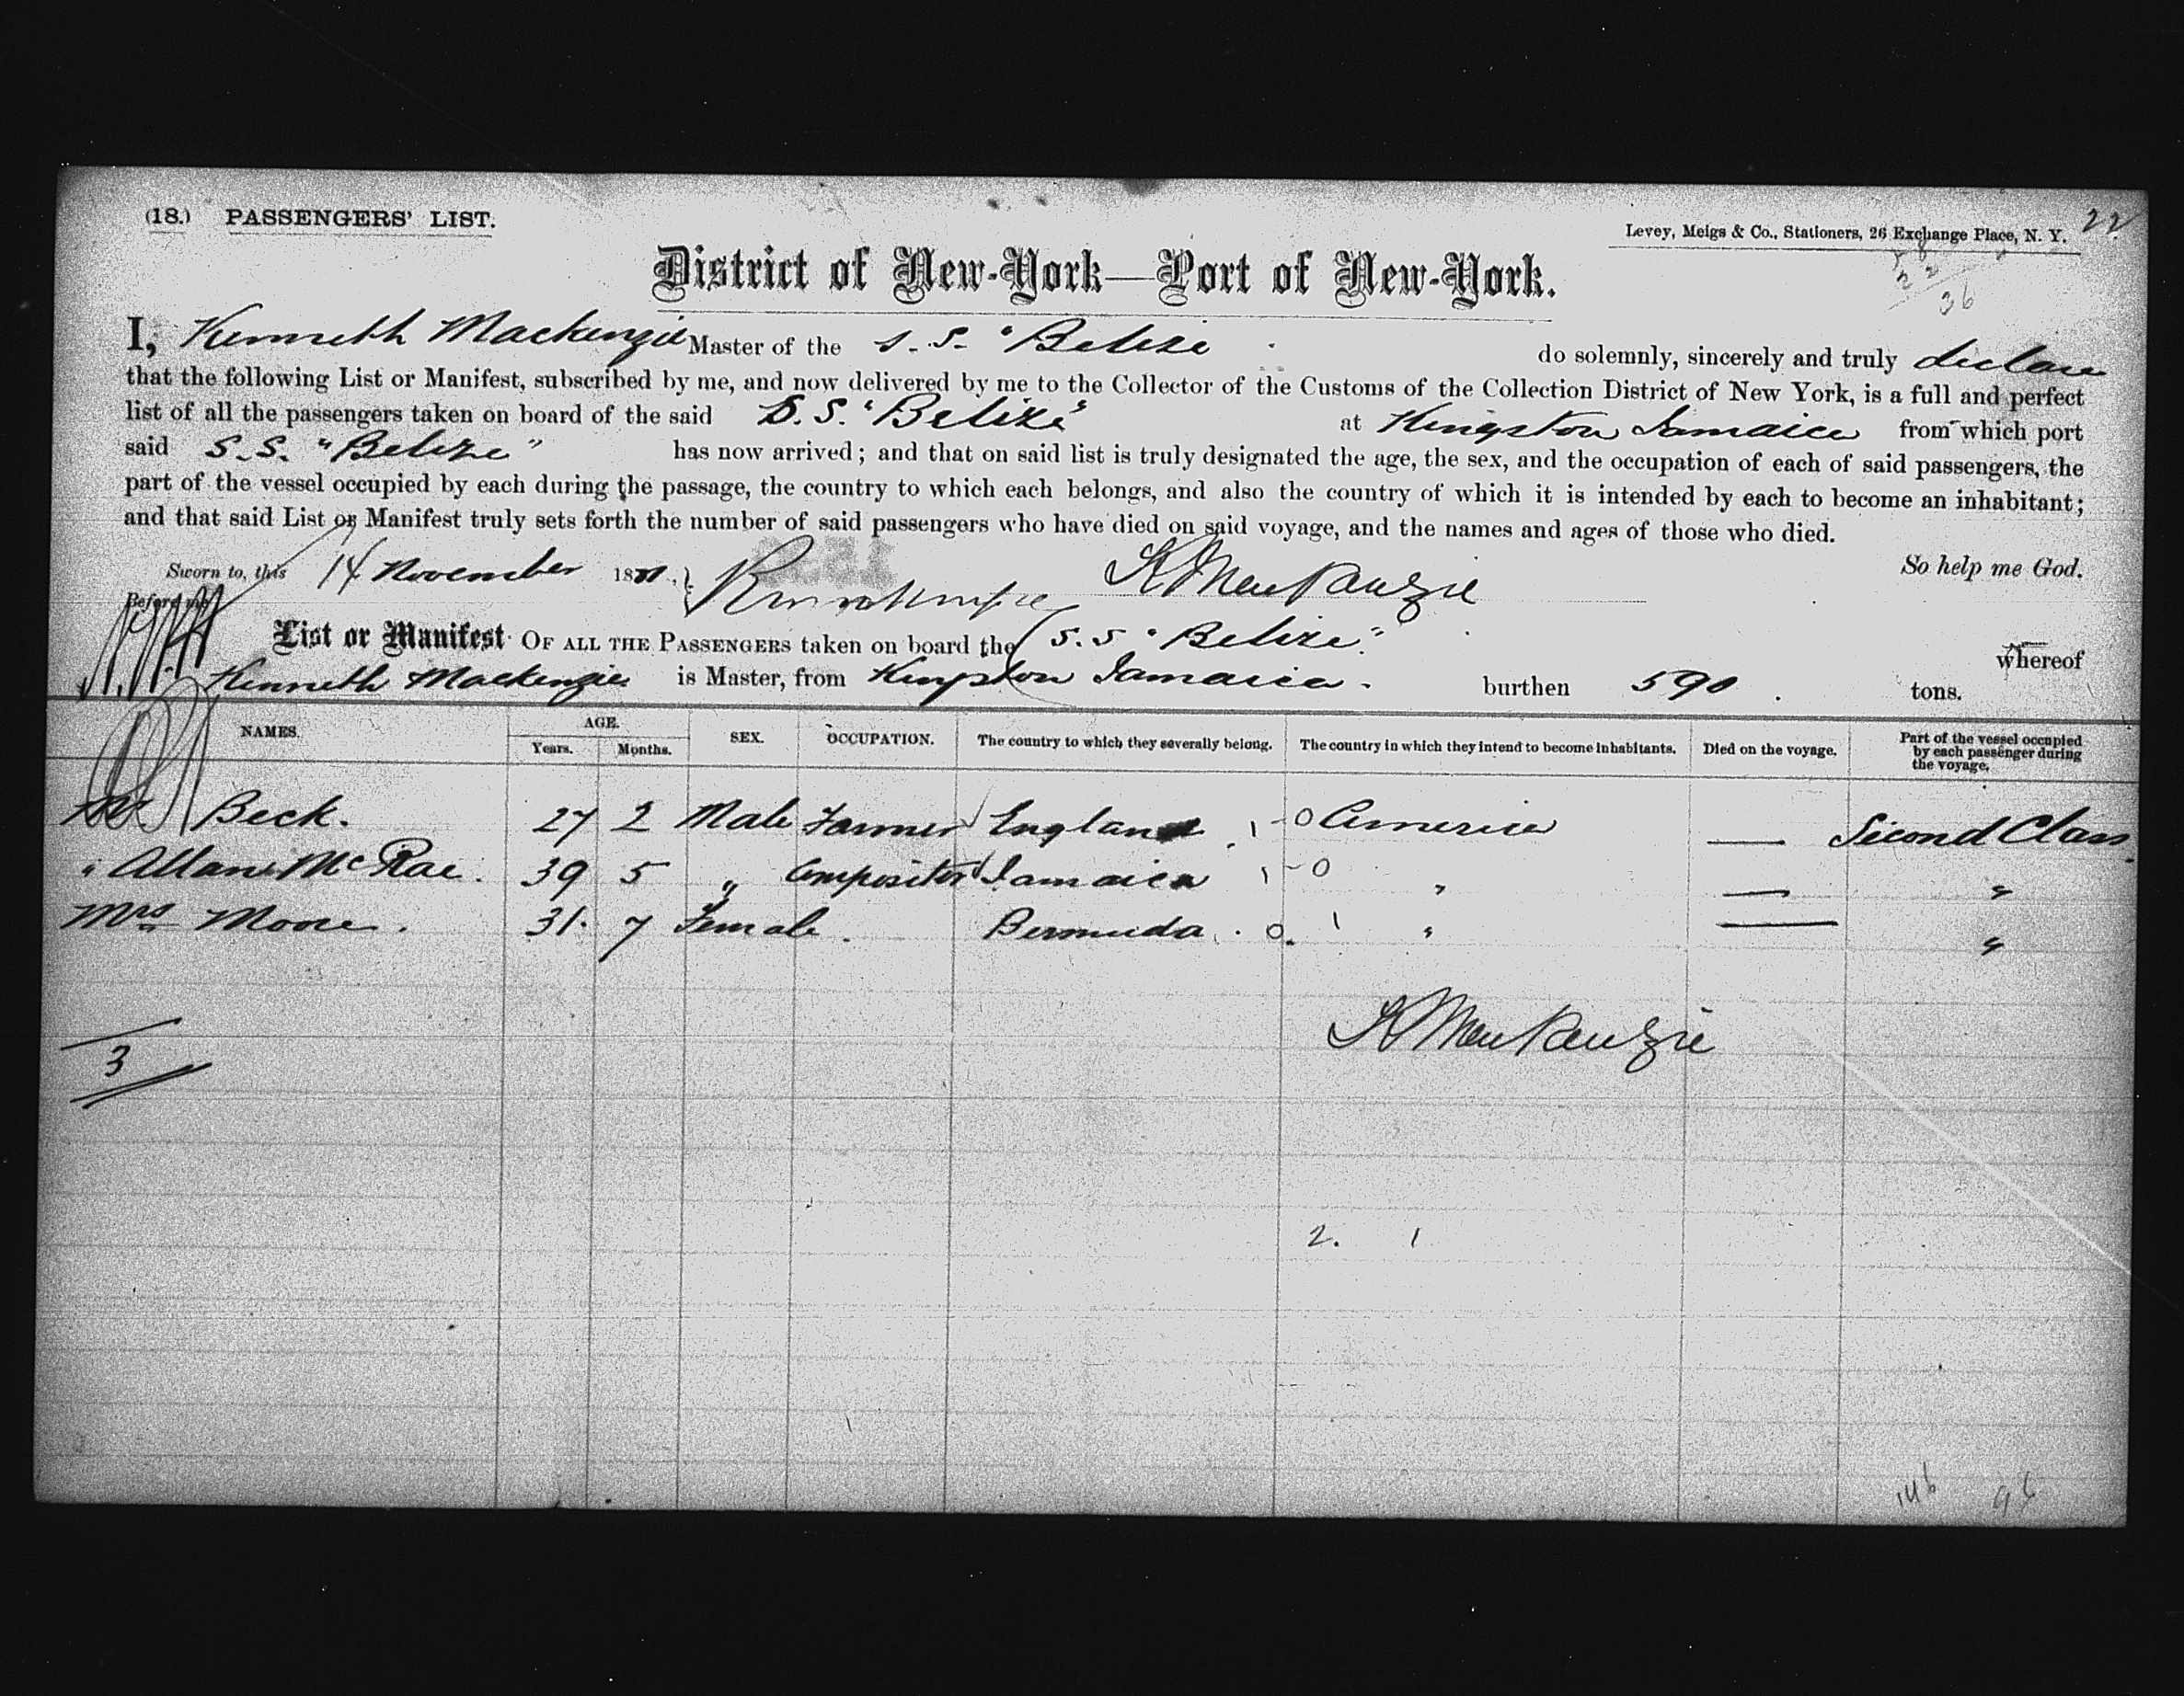 (18.) PASSENGERS' LIST.
Levey, Meigs & Co., Stationers, 26 Exchange Place, N. Y.
22
22
36
District of New-York—Port of New-York.
I, Kenneth Mackenzie Master of the S.S. "Belize" do solemnly, sincerely and truly declare
that the following List or Manifest, subscribed by me, and now delivered by me to the Collector of the Customs of the Collection District of New York, is a full and perfect
list of all the passengers taken on board of the said S.S. "Belize" at Kingston Jamaica from which port
said S.S. "Belize" has now arrived; and that on said list is truly designated the age, the sex, and the occupation of each of said passengers, the
part of the vessel occupied by each during the passage, the country to which each belongs, and also the country of which it is intended by each to become an inhabitant;
and that said List or Manifest truly sets forth the number of said passengers who have died on said voyage, and the names and ages of those who died.
So help me God.
Sworn to, this 14 November 18
K MacKenzie
Before me
List or Manifest OF ALL THE PASSENGERS taken on board the S.S "Belize" whereof
Kenneth Mackenzie is Master, from Kingston Jamaica. burthen 590. tons.
NAMES. AGE. Years. Months. SEX. OCCUPATION. The country to which they severally belong. The country in which they intend to become inhabitants. Died on the voyage. Part of the vessel occupied by each passenger during the voyage.
Mr Beck. 27 2 Male Farmer England 1 - 0 America — Second Class
" Allan McRae. 39 5 " Compositor Jamaica 1 - 0 " — "
Mrs Moore. 31. 7 Female. Bermuda. 0. 1 " — "
K MacKenzie
3
2. 1
146 96